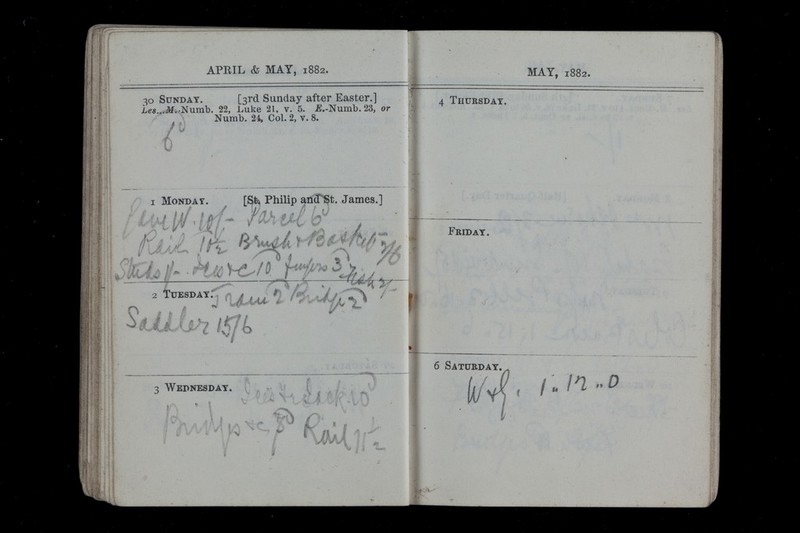 APRIL & MAY, 1882.
30 SUNDAY. [3rd Sunday after Easter.]
Les...M.-Numb. 22, Luke 21, v. 5. E.-Numb. 23, or
Numb. 24, Col. 2, v. 8.
6d
1 MONDAY. [St. Philip and St. James.]
Gave W. 10/- Parcel 6d
Rail 10½ Brush & Basket 2/6
Studs 1/- &c 10d 3d Fish 2/-
2 TUESDAY. Tram 2 Bridge 2d
Saddler 15/6
3 WEDNESDAY. 10d
Bridges &c 8d Rail 11½
MAY, 1882.
4 THURSDAY.
FRIDAY.
6 SATURDAY.
W & G. 1 " 12 " 0